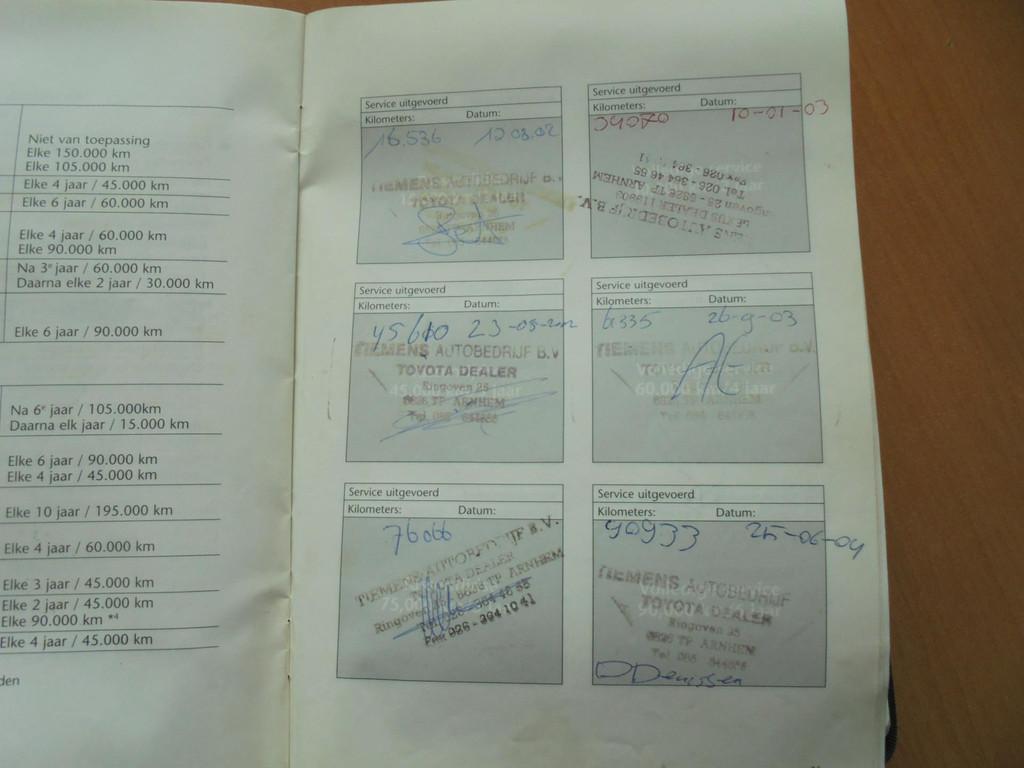 Niet van toepassing
Elke 150.000 km
Elke 105.000 km
Elke 4 jaar / 45.000 km
Elke 6 jaar / 60.000 km
Elke 4 jaar / 60.000 km
Elke 90.000 km
Na 3e jaar / 60.000 km
Daarna elke 2 jaar / 30.000 km
Elke 6 jaar / 90.000 km
Na 6e jaar / 105.000km
Daarna elk jaar / 15.000 km
Elke 6 jaar / 90.000 km
Elke 4 jaar / 45.000 km
Elke 10 jaar / 195.000 km
Elke 4 jaar / 60.000 km
Elke 3 jaar / 45.000 km
Elke 2 jaar / 45.000 km
Elke 90.000 km *4
Elke 4 jaar / 45.000 km
den
Service uitgevoerd
Kilometers: Datum:
16.536
TIEMENS AUTOBEDRIJF B.V
TOYOTA DEALER
ARNHEM
Service uitgevoerd
Kilometers: Datum:
10-01-03
AUTOBEDRIJF B.V.
LEXUS DEALER
6826 TP ARNHEM
Tel. 026 - 364 46 55
Fax 026 - 364
Service uitgevoerd
Kilometers: Datum:
45610
TIEMENS AUTOBEDRIJF B.V
TOYOTA DEALER
Ringoven 25
6826 TP ARNHEM
Tel.
Service uitgevoerd
Kilometers: Datum:
26-9-03
TIEMENS AUTOBEDRIJF B.V.
60.000 km/4 jaar
6826 TP ARNHEM
Service uitgevoerd
Kilometers: Datum:
76066
TIEMENS AUTOBEDRIJF B.V.
TOYOTA DEALER
Ringoven 6826 TP ARNHEM
Tel. 026 - 364 46 55
Fax 026 - 364 10 41
Service uitgevoerd
Kilometers: Datum:
90933 25-06-04
TIEMENS AUTOBEDRIJF
TOYOTA DEALER
Ringoven 25
6826 TP ARNHEM